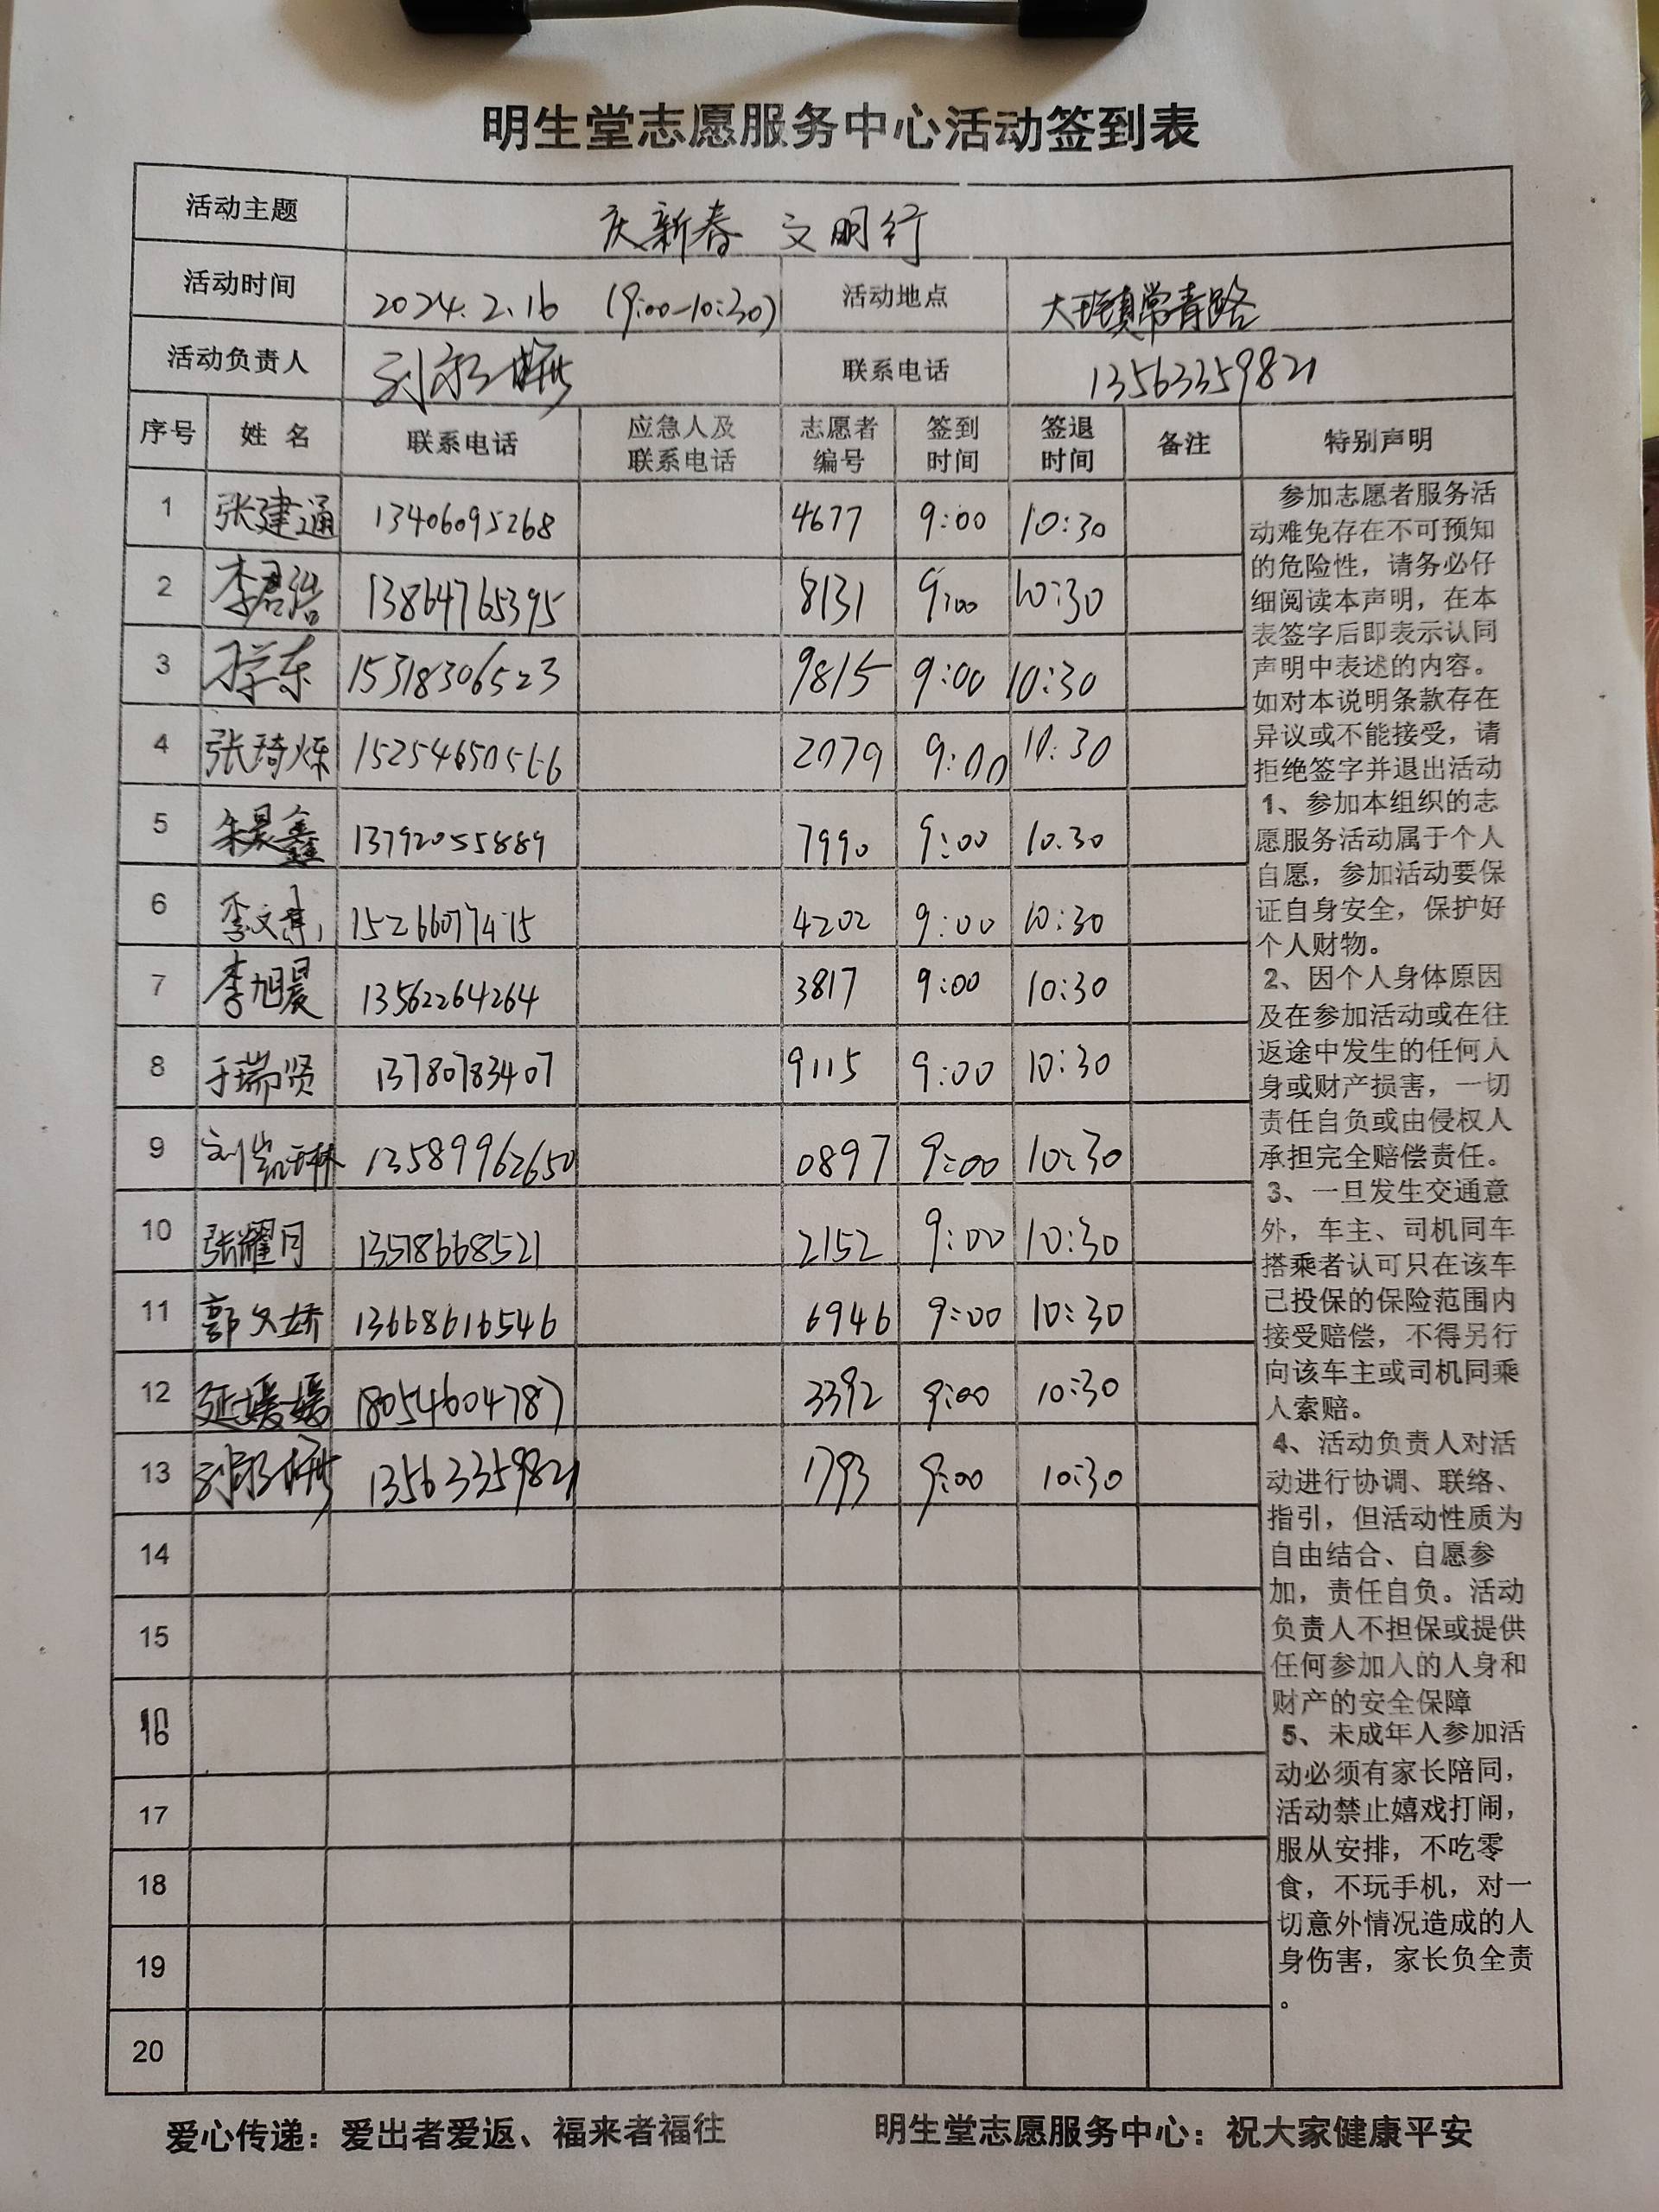 明生堂志愿服务中心活动签到表
活动主题 庆新春 文明行
活动时间 2024.2.16 (9:00-10:30) 活动地点 大王镇常青路
活动负责人 联系电话 13563359821
序号 姓名 联系电话 应急人及联系电话 志愿者编号 签到时间 签退时间 备注 特别声明
1 张建通 13406095268 4677 9:00 10:30
2 李君浩 13864765395 8131 9:00 10:30
3 15318306523 9815 9:00 10:30
4 张琦烁 15254650566 2079 9:00 10:30
5 朱晨鑫 13792055889 7990 9:00 10.30
6 李文 15266077415 4202 9:00 10:30
7 李旭晨 13562264264 3817 9:00 10:30
8 于瑞贤 13780783407 9115 9:00 10:30
9 刘凯琳 13589962650 0897 9:00 10:30
10 张耀月 13578668521 2152 9:00 10:30
11 郭文娇 13668616546 6946 9:00 10:30
12 延媛媛 18054604787 3392 9:00 10:30
13 13563359821 1793 9:00 10:30
14
15
16
17
18
19
20
参加志愿者服务活
动难免存在不可预知
的危险性，请务必仔
细阅读本声明，在本
表签字后即表示认同
声明中表述的内容。
如对本说明条款存在
异议或不能接受，请
拒绝签字并退出活动
1、参加本组织的志
愿服务活动属于个人
自愿，参加活动要保
证自身安全，保护好
个人财物。
2、因个人身体原因
及在参加活动或在往
返途中发生的任何人
身或财产损害，一切
责任自负或由侵权人
承担完全赔偿责任。
3、一旦发生交通意
外，车主、司机同车
搭乘者认可只在该车
已投保的保险范围内
接受赔偿，不得另行
向该车主或司机同乘
人索赔。
4、活动负责人对活
动进行协调、联络、
指引，但活动性质为
自由结合、自愿参
加，责任自负。活动
负责人不担保或提供
任何参加人的人身和
财产的安全保障
5、未成年人参加活
动必须有家长陪同，
活动禁止嬉戏打闹，
服从安排，不吃零
食，不玩手机，对一
切意外情况造成的人
身伤害，家长负全责
。
爱心传递：爱出者爱返、福来者福往 明生堂志愿服务中心：祝大家健康平安